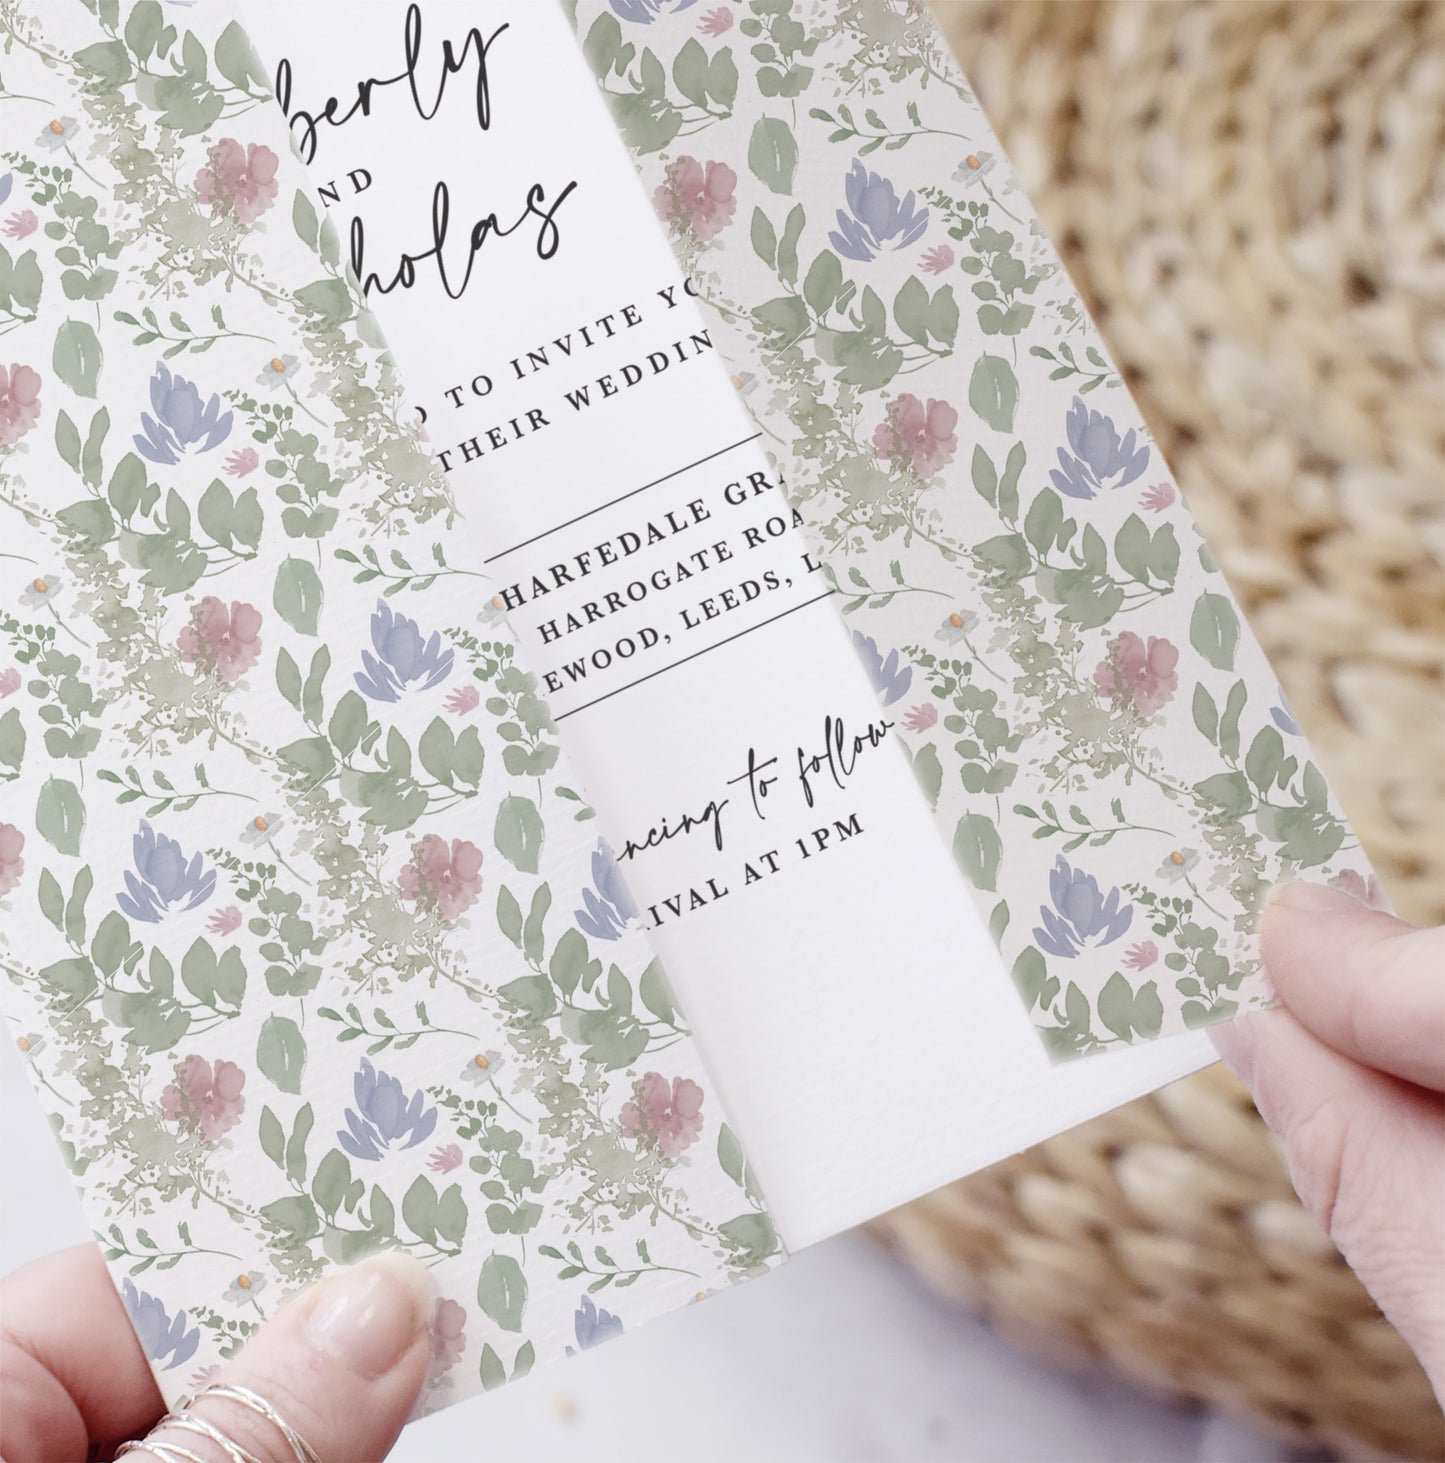 berly
ND
holas
TO INVITE YO
THEIR WEDDIN
HARFEDALE GRA
HARROGATE ROA
EWOOD, LEEDS, L
ncing to follow
IVAL AT 1PM